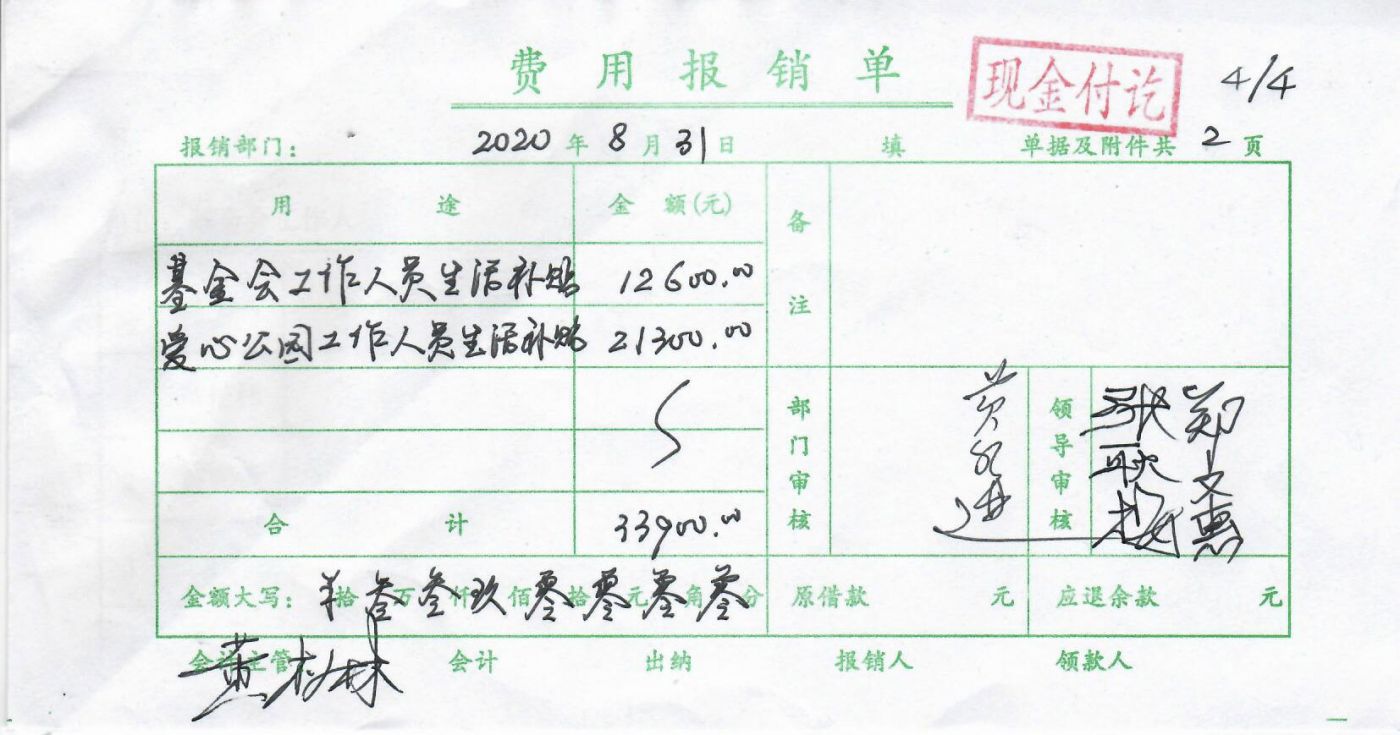 费用报销单
现金付讫
4/4
报销部门： 2020 年 8 月 31 日 填 单据及附件共 2 页
用途 金额(元) 备注
基金会工作人员生活补贴 12600.00
爱心公园工作人员生活补贴 21300.00
部门审核 领导审核 张耿梅 郑文惠
合计 33900.00
金额大写： 拾叁万叁仟玖佰零拾零元零角零分 原借款 元 应退余款 元
会计主管 会计 出纳 报销人 领款人
黄树林